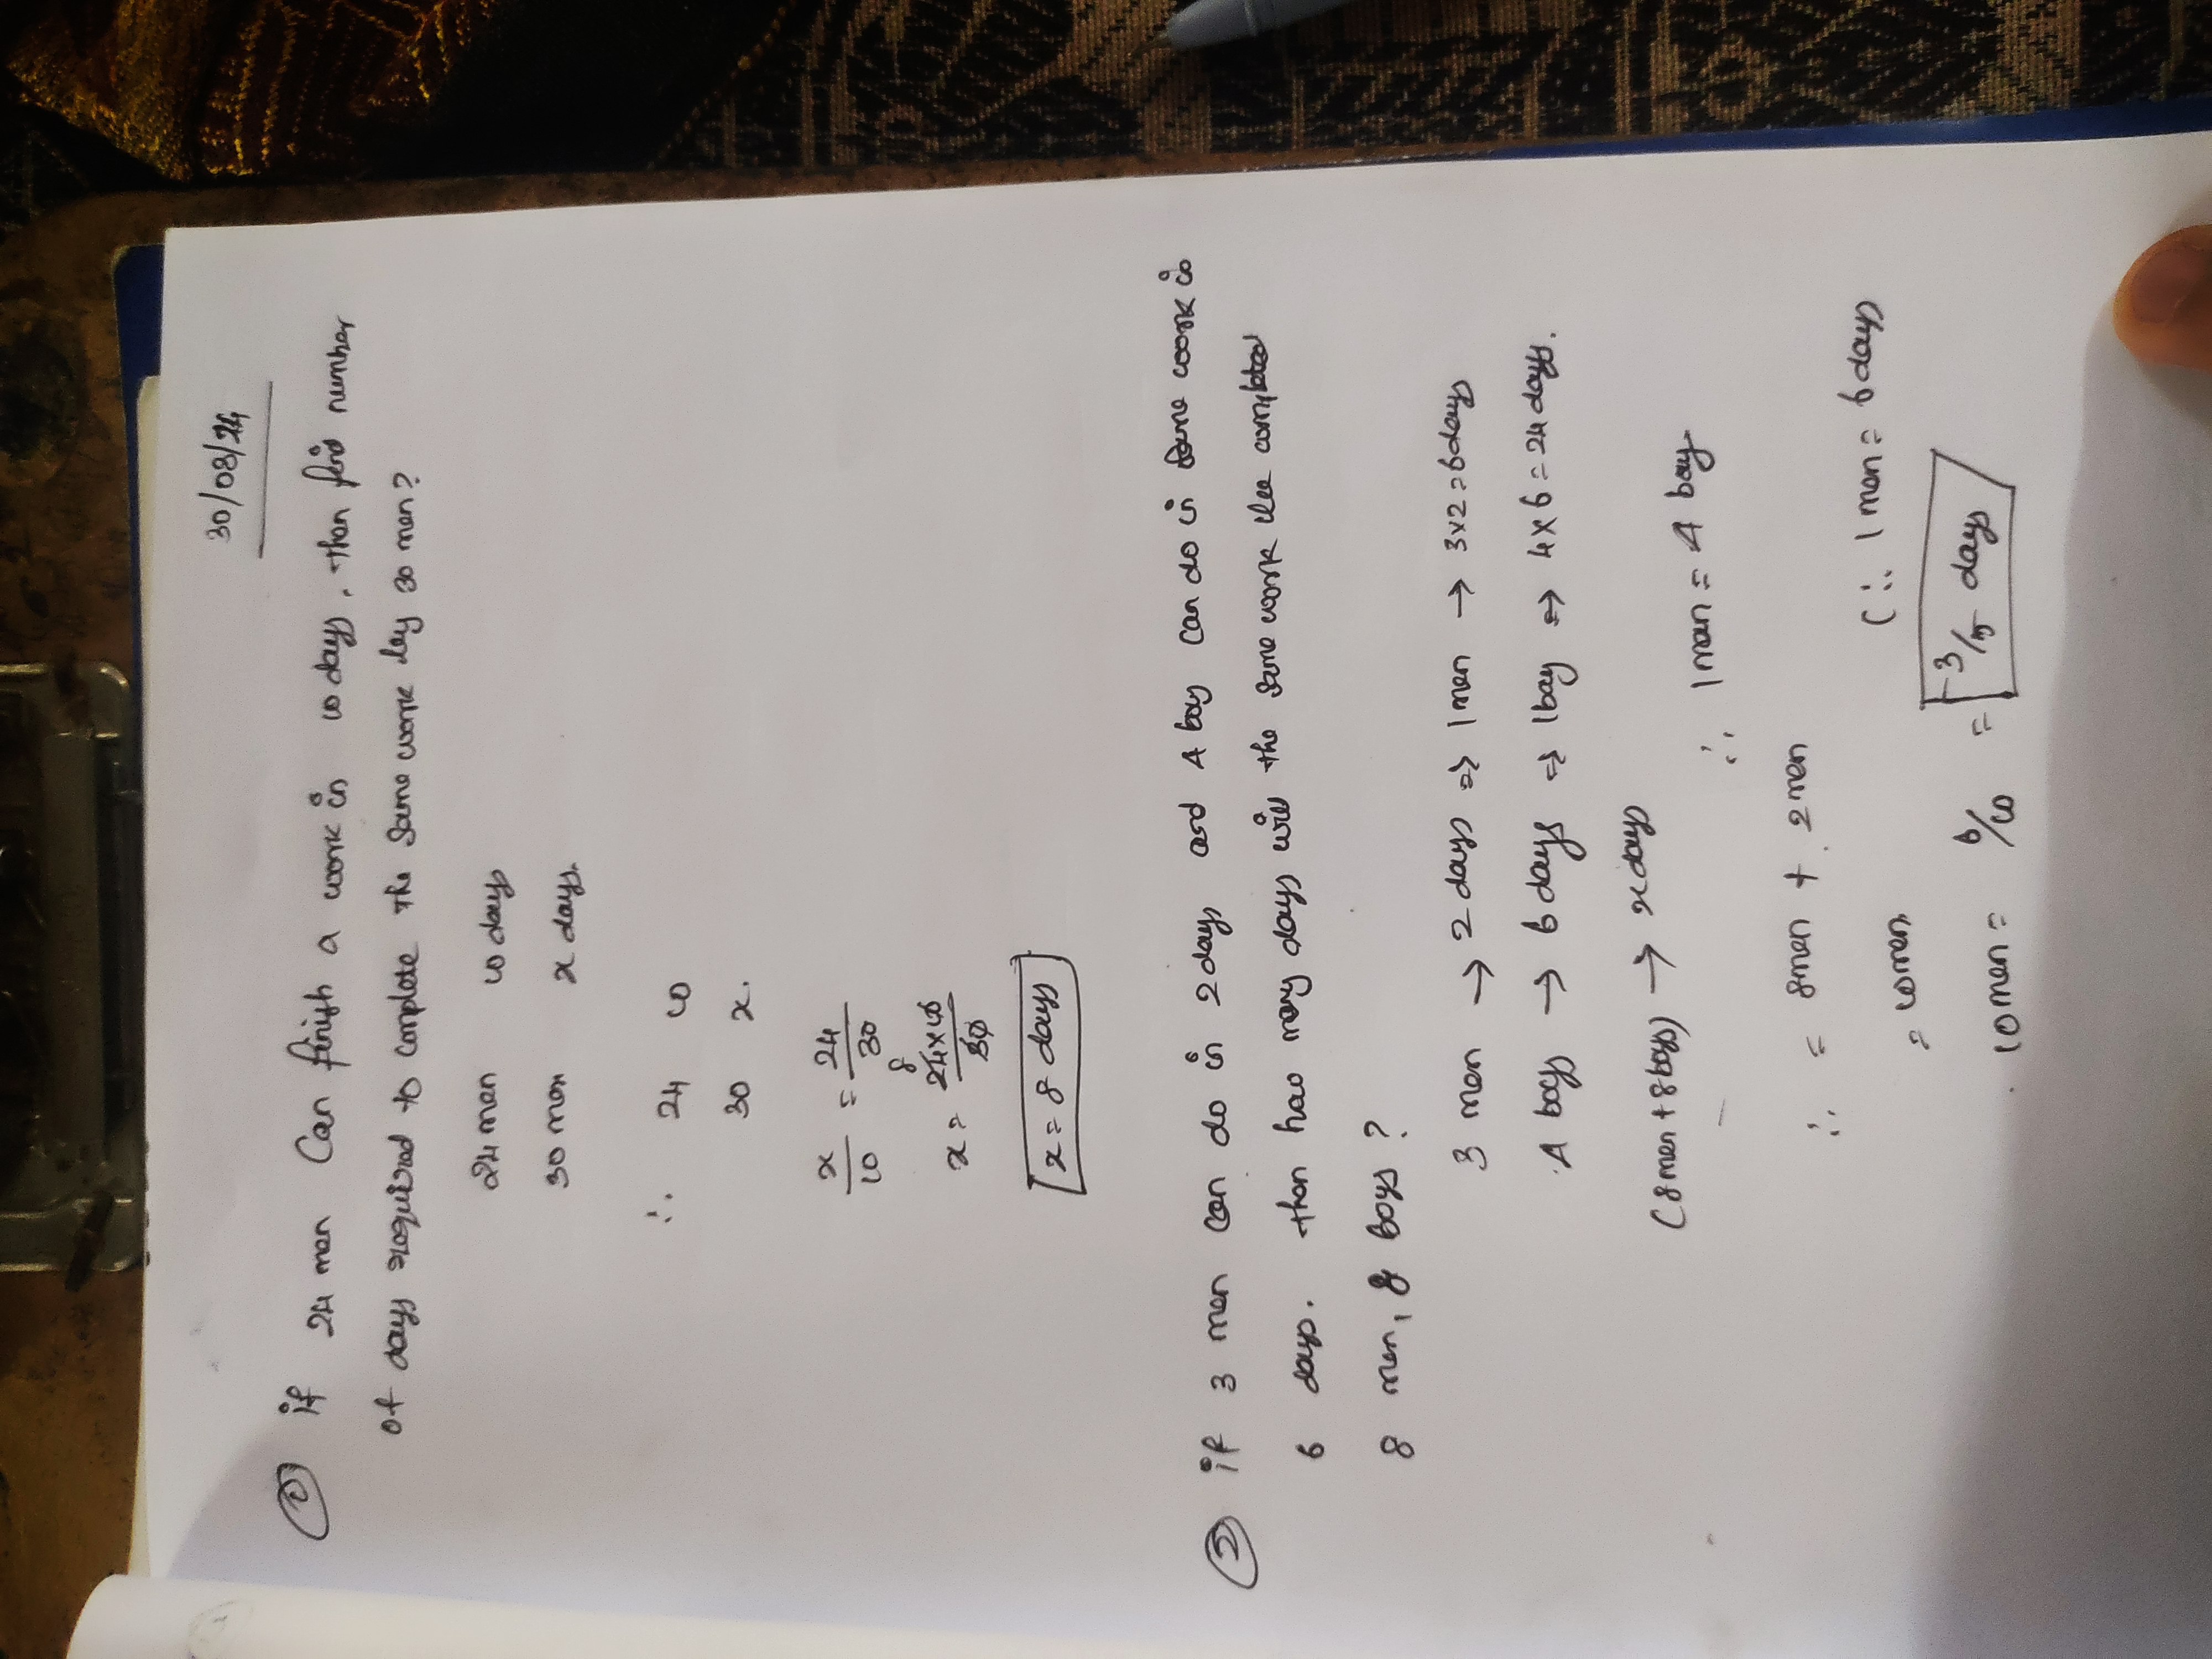 30/08/24
① if 24 men Can finish a work in 10 days, then find number
of days required to complete the same work by 30 men?
24 men 10 days
30 men x days.
∴ 24 10
30 x.
x/10 = 24/30
8
x = 24×10/30
x = 8 days
② if 3 men can do in 2 days and 4 boy can do in same work in
6 days. then how many days will the same work be completed
8 men, 8 Boys ?
3 men → 2 days ⇒ 1 men → 3×2=6 days
4 boys → 6 days ⇒ 1 boy ⇒ 4×6=24 days.
(8 men + 8 boys) → x days
∴ 1 man = 4 boy
∴ = 8 men + 2 men
= 10 men
(∴ 1 men = 6 days
10 men = 6/10 = 3/5 days